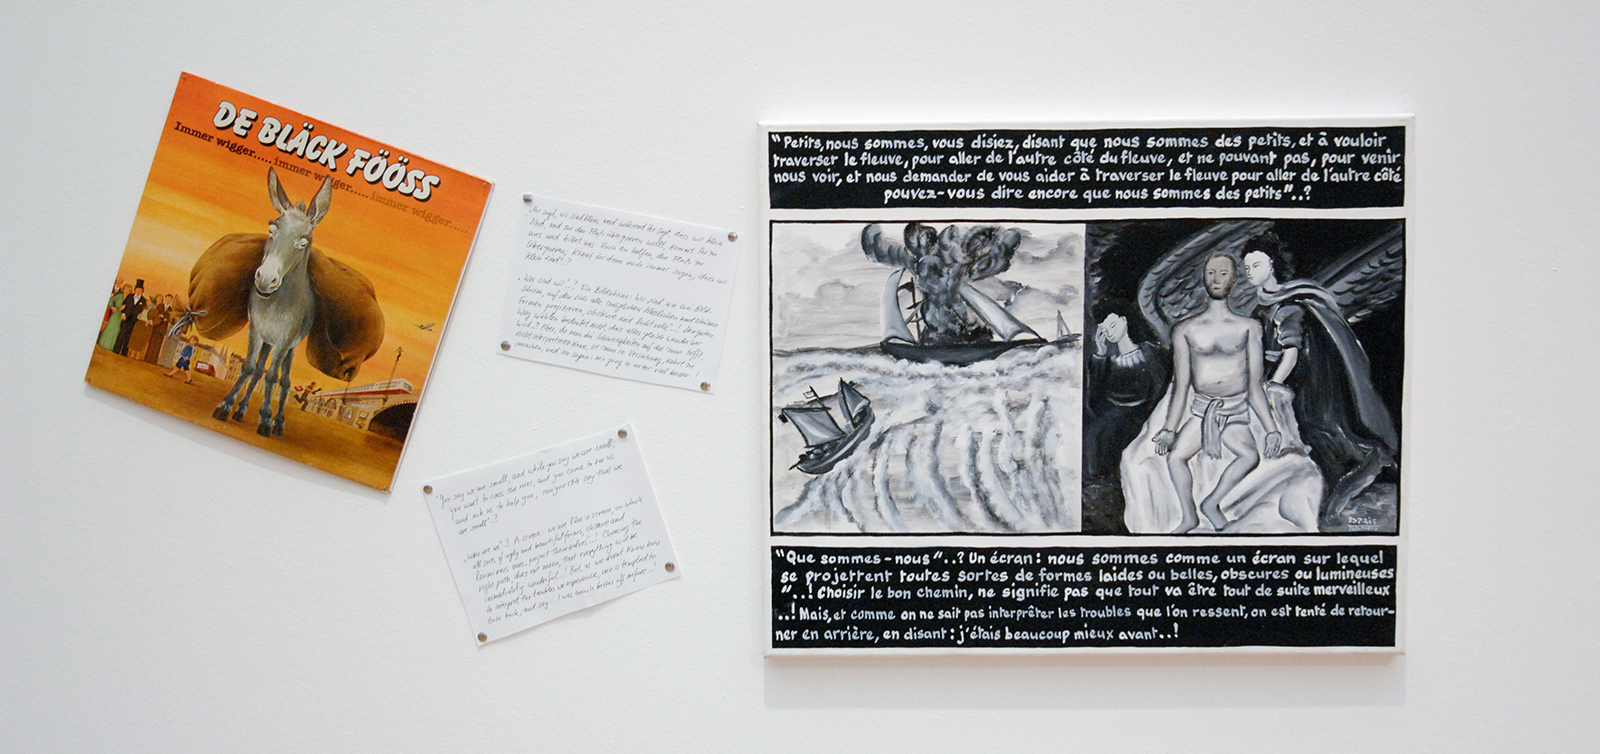 DE BLÄCK FÖÖSS
Immer wigger..... immer wigger..... immer wigger.....
"Ihr sagt, wir sind klein, und während ihr sagt, dass wir klein
sind, und
uns und bittet uns Euch zu helfen, den Fluss zu
überqueren, könnt ihr dann noch immer sagen, dass wir
klein sind"?
"Wer sind wir"..? Ein Bildschirm: wir sind wie ein Bild-
"You say we are small, and while you say we are small,
you want to cross the river, and you come to see us
and ask us to help you; can you still say that we
are small"..?
"Who are we"? A screen: we are like a screen, on which
all sorts of ugly and beautiful forms, obscure and
luminous ones, project themselves"..! Choosing the
right path, does not mean, that everything will be
immediately wonderful..! But, as we doesnt know how
to interpret the troubles we experience, one is tempted to
turn back, and say: I was much better off before...!
"Petits, nous sommes, vous disiez, disant que nous sommes des petits, et à vouloir
traverser le fleuve, pour aller de l'autre côté du fleuve, et ne pouvant pas, pour venir
nous voir, et nous demander de vous aider à traverser le fleuve pour aller de l'autre côté
pouvez-vous dire encore que nous sommes des petits"..?
"Que sommes-nous"..? Un écran: nous sommes comme un écran sur lequel
se projettent toutes sortes de formes laides ou belles, obscures ou lumineuses
"..! Choisir le bon chemin, ne signifie pas que tout va être tout de suite merveilleux
..! Mais, et comme on ne sait pas interpréter les troubles que l'on ressent, on est tenté de retour-
ner en arrière, en disant: j'étais beaucoup mieux avant..!